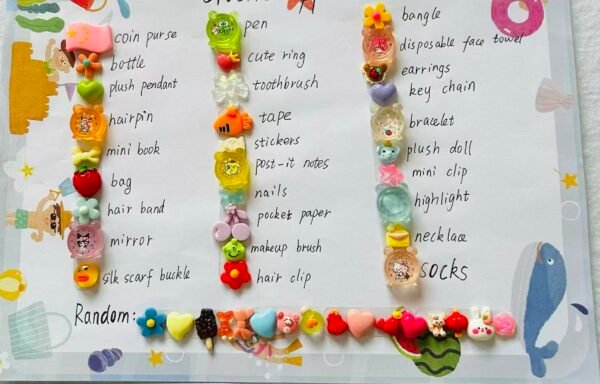 coin purse
bottle
plush pendant
hairpin
mini book
bag
hair band
mirror
silk scarf buckle
pen
cute ring
toothbrush
tape
stickers
post-it notes
nails
pocket paper
makeup brush
hair clip
bangle
disposable face towel
earrings
key chain
bracelet
plush doll
mini clip
highlight
necklace
socks
Random: